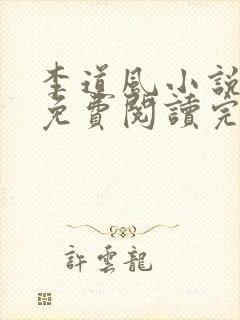 李道風小說
免費閱讀完
許雲龍